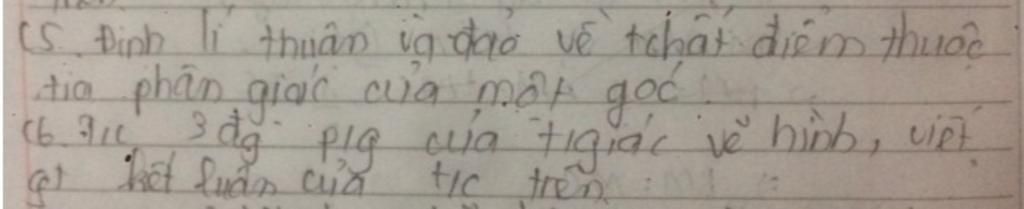 C5. Định lí thuận và đảo về tchất điểm thuộc
tia phân giác của một góc.
C6. T/c 3 đg p/g của t/giác vẽ hình, viết
gt kết luận của t/c trên.